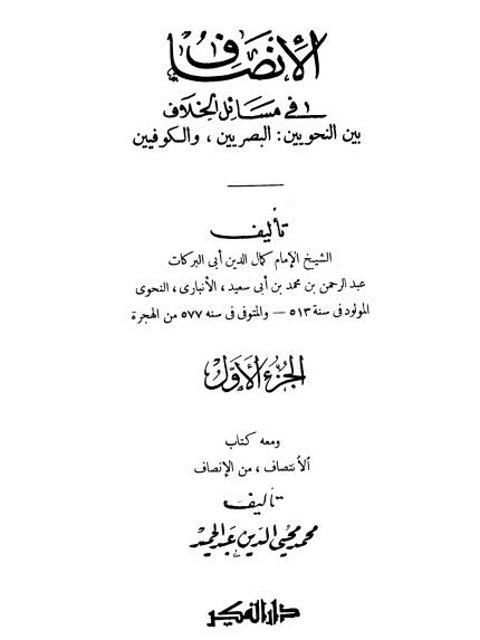 الإنصاف
في مسائل الخلاف
بين النحويين: البصريين، والكوفيين
تأليف
الشيخ الإمام كمال الدين أبى البركات
عبد الرحمن بن محمد بن أبى سعيد، الأنبارى، النحوى
المولود فى سنة ٥١٣ – والمتوفى فى سنه ٥٧٧ من الهجرة
الجزء الأول
ومعه كتاب
الانتصاف، من الإنصاف
تأليف
محمد محيي الدين عبد الحميد
دار الفكر